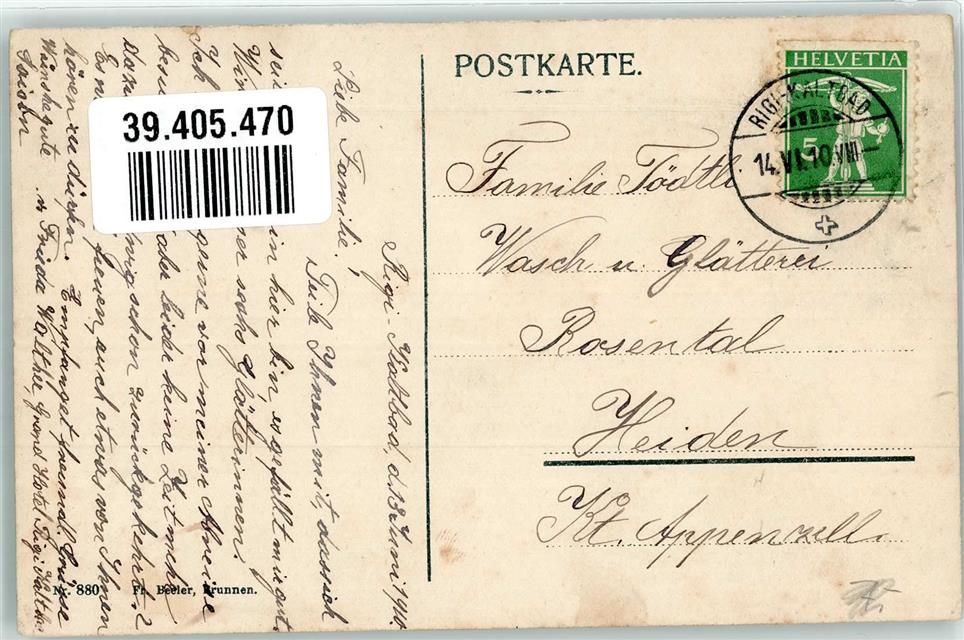 POSTKARTE.
HELVETIA
5
RIGI-KALTBAD
14.VI.10.VIII
39.405.470
Familie Tödtl
Wasch u. Glätterei
Rosental
Heiden
Kt. Appenzell.
Rigi-Kaltbad, d. 13 Juni 1910.
Liebe Familie!
Teile Ihnen mit, dass ich
hier bin, es gefällt mir gut.
sechs Glätterinnen!
Ich gerne vor meiner Abreise
aber leider keine Zeit mehr
schon zurückgekehrt?
Es freuen, auch etwas von Ihnen
hören zu dürfen. Empfanget freundl. Grüsse
Wünsche gute Frieda Walther Grand Hotel Rigi Kaltbad
Saison
Nr. 880 Fr. Beeler, Brunnen.